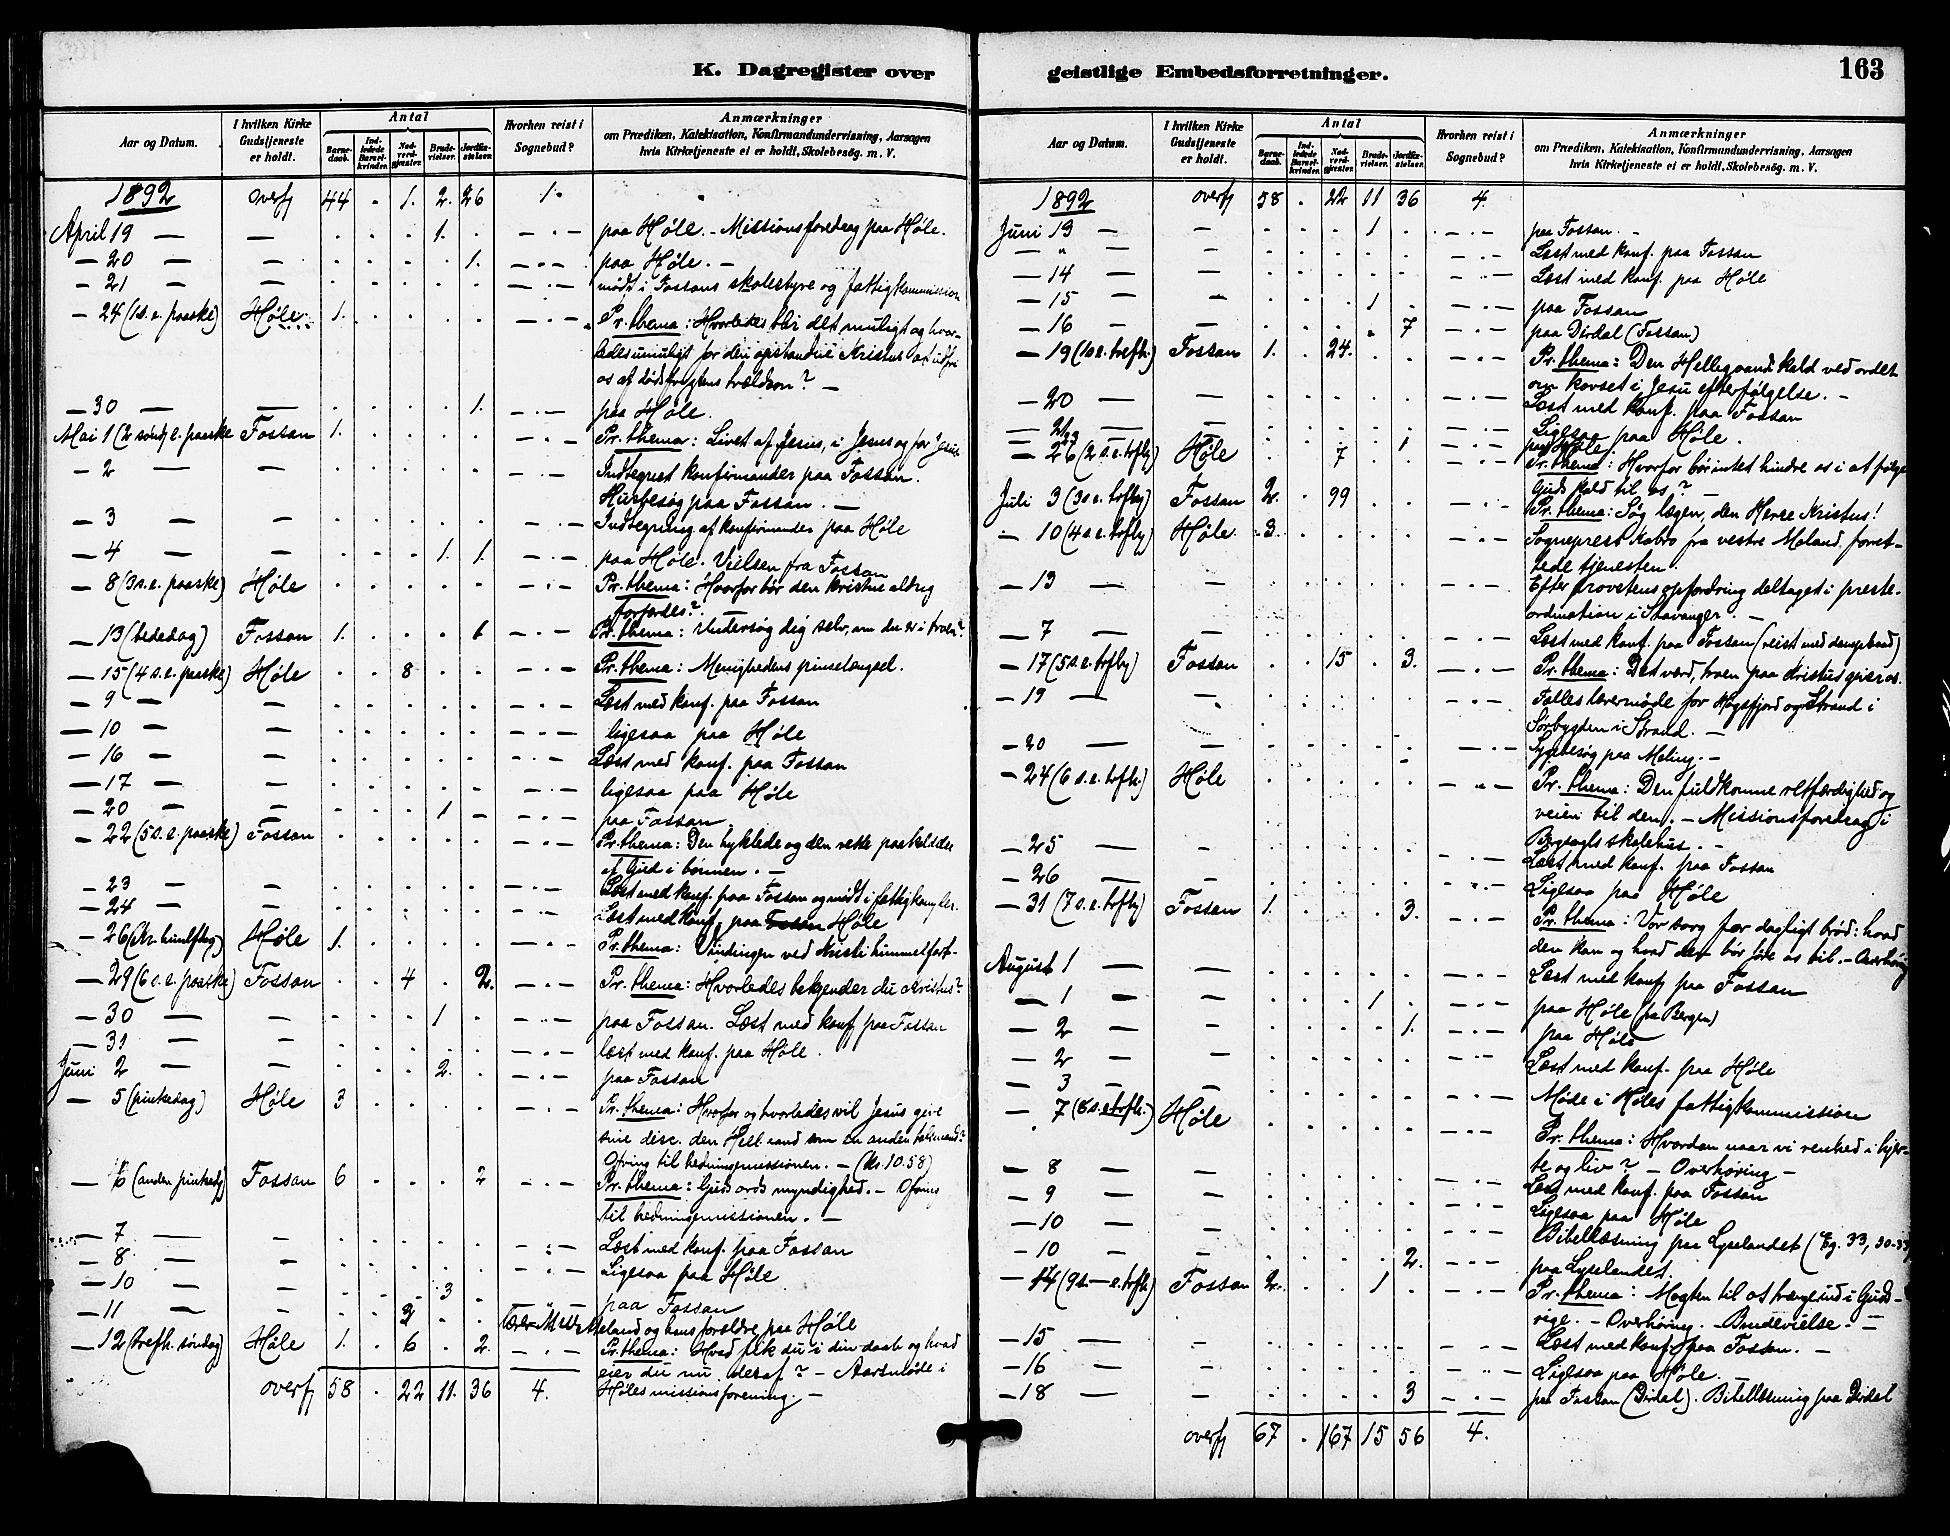 K. Dagregister over
Aar og Datum. I hvilken Kirke Gudstjeneste er holdt. Antal Barnedaab. Indledede Barselkvinder. Nadverdgjæster. Brudevielser. Jordfæstelser. Hvorhen reist i Sognebud? Anmærkninger om Prædiken, Katekisation, Konfirmandundervisning, Aarsagen hvis Kirketjeneste ei er holdt, Skolebesøg. m. V.
1892 overf 44 . 1. 2. 26 1.
April 19 — — . . . 1. . — . — paa Høle. - Missionsforedrag paa Høle.
— 20 — — . . . . 1. — . — paa Høle. —
— 21 — — . . . . . — . — mødt i Fossans skolestyre og fattigkommission
— 24 (1 s. e. paaske) Høle 1. . . . . — . — Pr. thema: Hvorledes blir det muligt og hvor-
ledes umuligt for den opstandne Kristus at udfri
os af dødsfrygtens trældom? —
— 30 — — . . . . 1. — . — paa Høle.
Mai 1 (2 sønd. e. paaske Fossan 1. . . . . — . — Pr. thema: Livet af Jesus, i Jesus og for Jesus
— 2 — — . . . . . — . — Indtegnet konfirmander paa Fossan.
Husbesøg paa Fossan. —
— 3 — — . . . . . — . — Indtegning af konfirmander paa Høle
— 4 — — . . . 1. 1. — . — paa Høle. Vielsen fra Fossan
— 8 (3 s. e. paaske) Høle . . . . . — . — Pr. thema: Hvorfor bør den kristne aldrig
forfærdes?
— 13 (bededag) Fossan 1. . . . 6 — . — Pr. thema: Undersøg dig selv, om du er i troen?
— 15 (4 s. e. paaske) Høle . . 8 . . — . — Pr. thema: Menighedens pinselængsel.
— 9 — — . . . . . — . — Læst med konf. paa Fossan
— 10 — — . . . . . — . — ligesaa paa Høle
— 16 — — . . . . . — . — Læst med konf. paa Fossan
— 17 — — . . . . . — . — ligesaa paa Høle
— 20 — — . . . 1 . — . — paa Fossan
— 22 (5 s. e. paaske) Fossan . . . . . — . — Pr. thema: Den hyklede og den rette paakaldelse
af Gud i bønnen. —
— 23 — — . . . . . — . — Læst med konf. paa Fossan og mødt i fattigkom
— 24 — — . . . . . — . — Læst med konf. paa Høle
— 26 (Kr. himlfdg) Høle 1. . . . . — . — Pr. thema: Vindingen ved Kristi himmelfart.
— 29 (6 s. e. paaske) Fossan . . 4 . 2. — . — Pr. thema: Hvorledes bekjender du Kristus?
— 30 — — . . . 1 . — . — paa Fossan. Læst med konf. paa Fossan
— 31 — — . . . . . — . — læst med konf. paa Høle.
Juni 2 — — . . . 2. . — . — paa Fossan
— 5 (pinsedag) Høle 3 . . . . — . — Pr. thema: Hvorfor og hvorledes vil Jesus give
sine disc. den Hell. aand som en anden talsmand?
Ofring til hedningemissionen. — (kr. 10.58)
— 6 (anden pinsedg) Fossan 6 . . . 2 — . — Pr. thema: Guds ords myndighed. — Ofring
til hedningemissionen. —
— 7 — — . . . . . — . — Læst med konf. paa Fossan
— 8 — — . . . . . — . — Ligesaa paa Høle
— 10 — — . . . 3 . paa Fossan
— 11 — — . . 3 . . og hans forældre paa Høle
— 12 (trefh. søndag) Høle 1. . 6 . 2. — . — Pr. thema: Hvad fik du i din daab og hvad
eier du nu deraf? — Aarsmøde i
Høles missionsforening. —
overf 58 . 22 11. 36 4.
geistlige Embedsforretninger.
163
Aar og Datum. I hvilken Kirke Gudstjeneste er holdt. Antal Barnedaab. Indledede Barselkvinder. Nadverdgjæster. Brudevielser. Jordfæstelser. Hvorhen reist i Sognebud? Anmærkninger om Prædiken, Katekisation, Konfirmandundervisning, Aarsagen hvis Kirketjeneste ei er holdt, Skolebesøg. m. V.
1892 overf 58 . 22 11 36 4.
Juni 13 — — . . . 1 . — . — paa Fossan. —
— " — — . . . . . — . — Læst med konf. paa Fossan
— 14 — — . . . . . — . — Læst med konf. paa Høle
— 15 — — . . . 1 . — . — paa Fossan
— 16 — — . . . . 7 — . — paa Dirdal (Fossan)
— 19 (1 s. e. trefh.) Fossan 1. . 24. . . — . — Pr. thema: Den Helligaands kald ved ordet
om korset i Jesu efterfølgelse. —
— 20 — — . . . . . — . — Læst med konf. paa Fossan
— — . . . . . — . — Ligesaa paa Høle.
23 — — . . . . 1 paa Høle
— 26 (2 s. e. trefh) Høle . . 7 . . — . — Pr. thema: Hvorfor bør intet hindre os i at følge
Guds kald til os? —
Juli 3 (3 s. e. trefh) Fossan 2. . 99 . . — . — Pr. thema: Søg lægen, den Herre Kristus!
— 10 (4 s. e. trefh) Høle 3. . . . . — . — Sogneprest fra vestre Moland, forret-
tede tjenesten.
— 13 — — . . . . . — . — Efter provstens opfordring deltaget i preste-
ordination i Stavanger. —
— 7 — — . . . . . — . — Læst med konf. paa Fossan (reist med dampbaad)
— 17 (5 s. e. trefh) Fossan . . 15 . 3. — . — Pr. thema: Det værd, troen paa Kristus giver os.
— 19 — — . . . . . — . — Fælles lærermøde for Høgsfjord og Strand i
Sørbygden i Strand. —
— 20 — — . . . . . — . — Sygebesøg paa Meling. —
— 24 (6 s. e. trefh) Høle . . . . . — . — Pr. thema: Den fuldkomne retfærdighed og
veien til den. — Missionsforedrag i
Bergsagels skolehus. —
— 25 — — . . . . . — . — Læst med konf. paa Fossan
— 26 — — . . . . . — . — Ligesaa paa Høle
— 31 (7 s. e. trefh) Fossan 1. . . . 3. — . — Pr. thema: Vor sorg for dagligt brød: hvad
den kan og hvad den bør føre os til. — Overhøring
August 1 — — . . . . . — . — Læst med konf. paa Fossan
— 1 — — . . . 1 . — . — paa Høle (fra Bergen)
— 2 — — . . . . 1. — . — paa Høle
— 2 — — . . . . . — . — Læst med konf. paa Høle
— 3 — — . . . . . Møde i Høles fattigkommission
— 7 (8 s. e. trefh.) Høle . . . . . — . — Pr. thema: Hvordan naar vi renhed i hjer-
te og liv? — Overhøring —
— 8 — — . . . . . — . — Læst med konf. paa Fossan
— 9 — — . . . . . — . — Ligesaa paa Høle
— 10 — — . . . . . — . — Bibellæsning paa Lyselandet (Eg. 33, 30-33)
— 10 — — . . . . 2. — . — paa Lyselandet.
— 14 (9 s. — e. trefh) Fossan 2. . . 1 . — . — Pr. thema: Magten til at trænge ind i Guds
rige. — Overhøring. — Brudevielse. —
— 15 — — . . . . . — . — Læst med konf. paa Fossan. —
— 16 — — . . . . . — . — Ligesaa paa Høle.
— 18 — — . . . . 3 — . — paa Fossan (Dirdal). Bibellæsning paa Dirdal
overf 67 . 167 15 56 4.